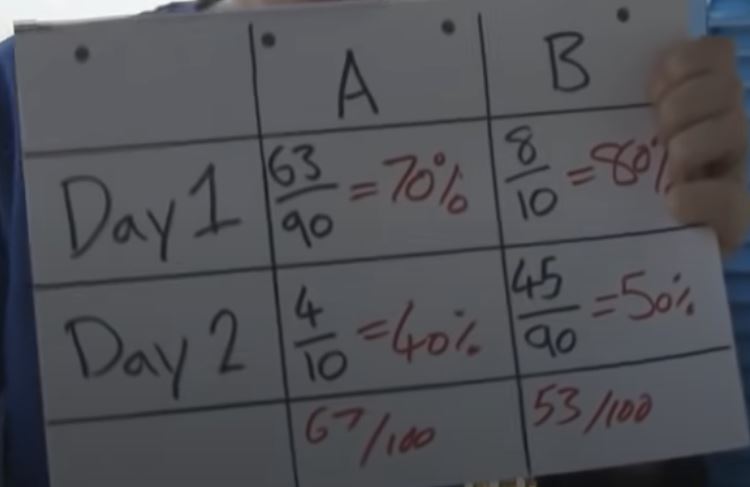 A B
Day 1 63/90 = 70% 8/10 = 80%
Day 2 4/10 = 40% 45/90 = 50%
67/100 53/100